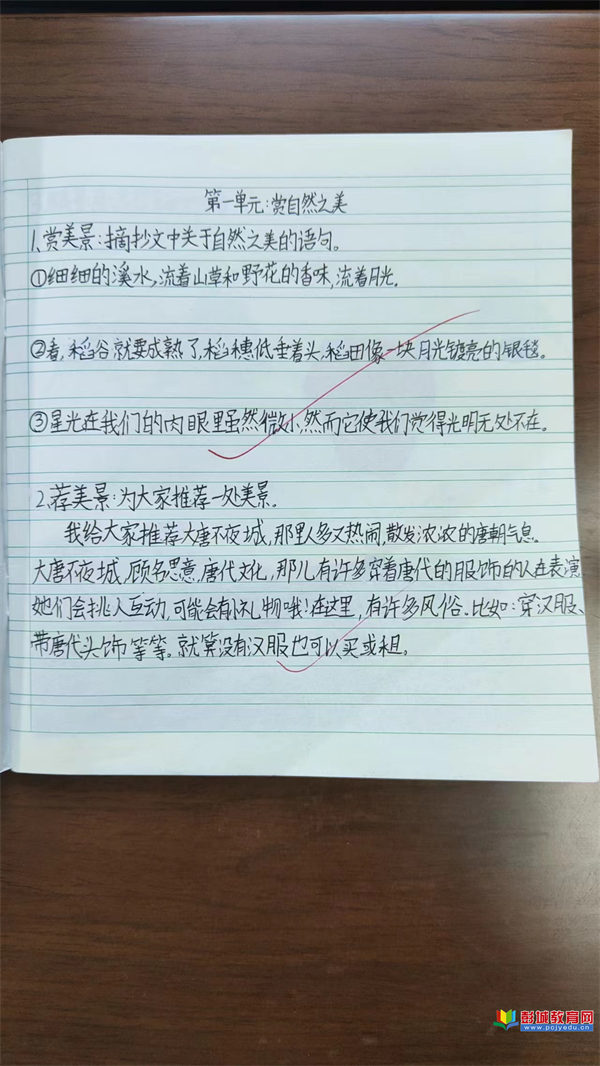 第一单元:赏自然之美
1、赏美景:摘抄文中关于自然之美的语句。
①细细的溪水,流着山草和野花的香味,流着月光。
②看,稻谷就要成熟了,稻穗低垂着头,稻田像一块月光镀亮的银毯。
③星光在我们的肉眼里虽然微小,然而它使我们觉得光明无处不在。
2、荐美景:为大家推荐一处美景。
我给大家推荐大唐不夜城,那里人多又热闹,散发浓浓的唐朝气息。
大唐不夜城,顾名思意,唐代文化,那儿有许多穿着唐代的服饰的人在表演,
她们会挑人互动,可能会有小礼物哦!在这里,有许多风俗.比如:穿汉服、
带唐代头饰等等。就算没有汉服也可以买或租。
彭城教育网
www.pcjyedu.cn